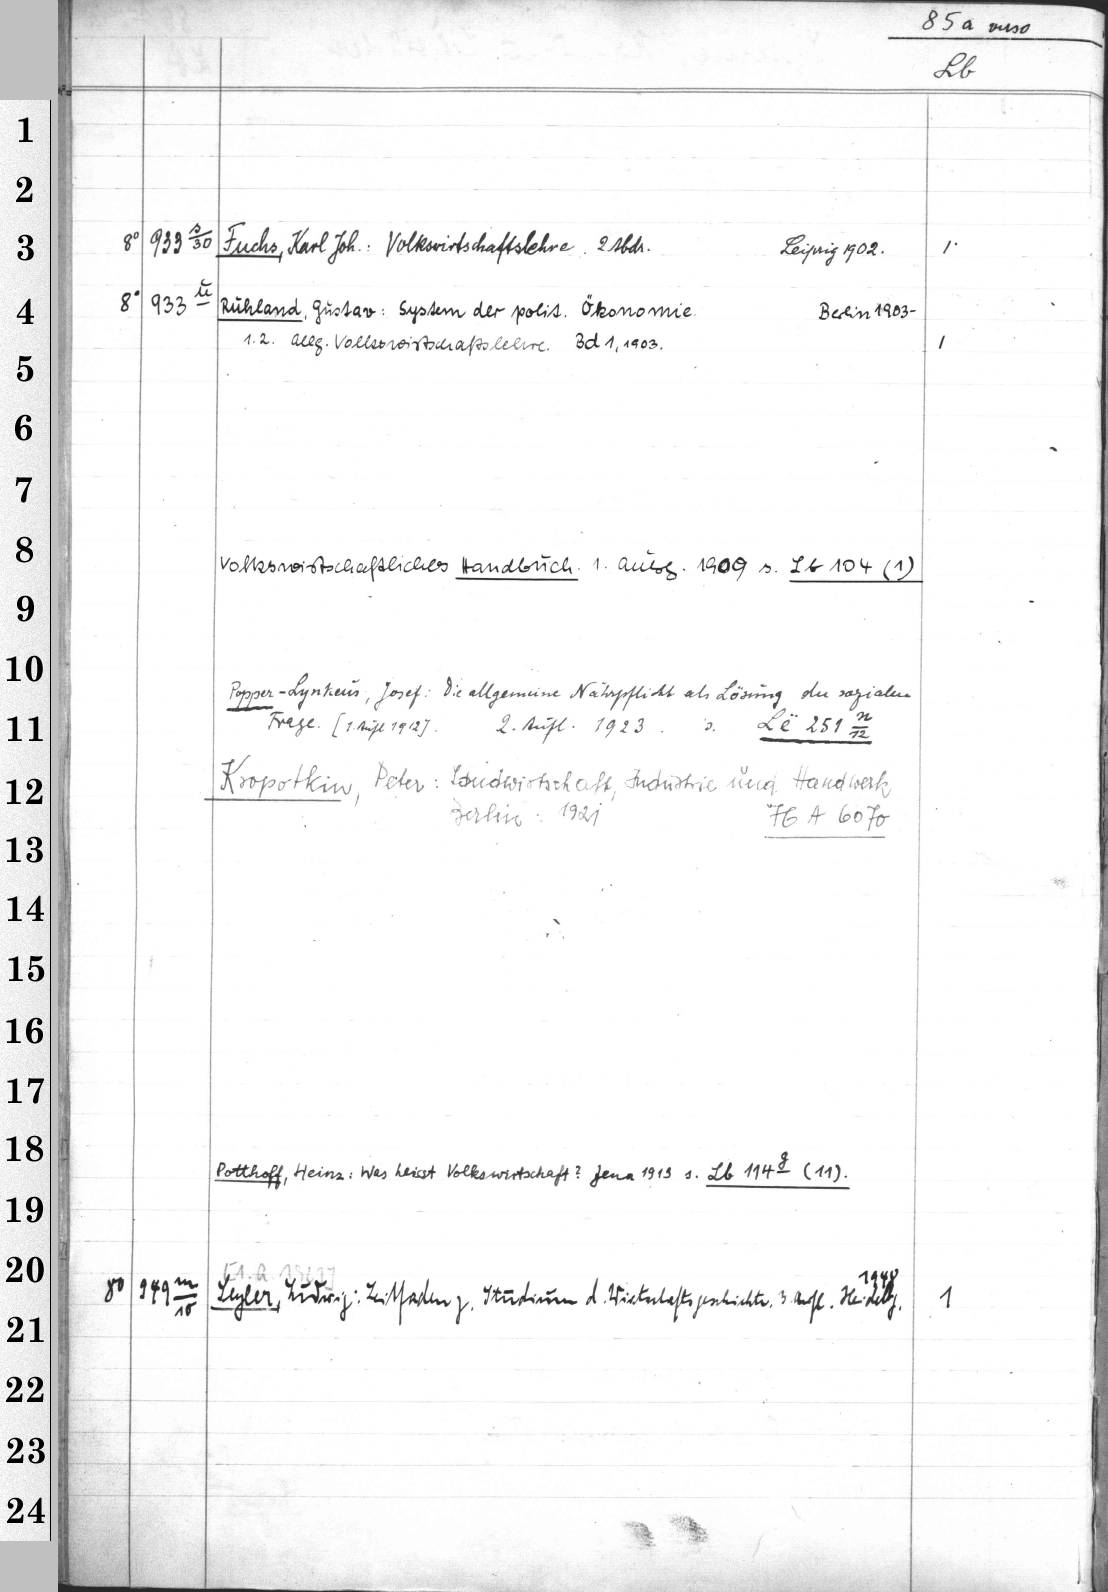 85a verso
Lb
1
2
3 8° 933 s/30 Fuchs, Karl Joh.: Volkswirtschaftslehre. 2 Abdr. Leipzig 1902. 1
4 8° 933 u Ruhland, Gustav: System der polit. Ökonomie Berlin 1903-
1.2. Allg. Volkswirtschaftslehre. Bd 1, 1903. 1
5
6
7
8 Volkswirtschaftliches Handbuch. 1. Ausg. 1909 s. Lb 104 (1)
9
10 Popper-Lynkeus, Josef: Die allgemeine Nährpflicht als Lösung der sozialen
11 Frage. [1. Aufl 1912]. 2. Aufl. 1923. s. Lë 251 n/12
12 Kropotkin, Peter: Landwirtschaft, Industrie und Handwerk
Berlin: 1921 76 A 6070
13
14
15
16
17
18 Potthoff, Heinz: Was heisst Volkswirtschaft? Jena 1913 s. Lb 114 g (11).
19
20
8° 949 m/18 Ludwig: Leitfaden z. Studium d. Wirtschaftsgeschichte. 3. Aufl. Heidelbg. 1948 1
21
22
23
24